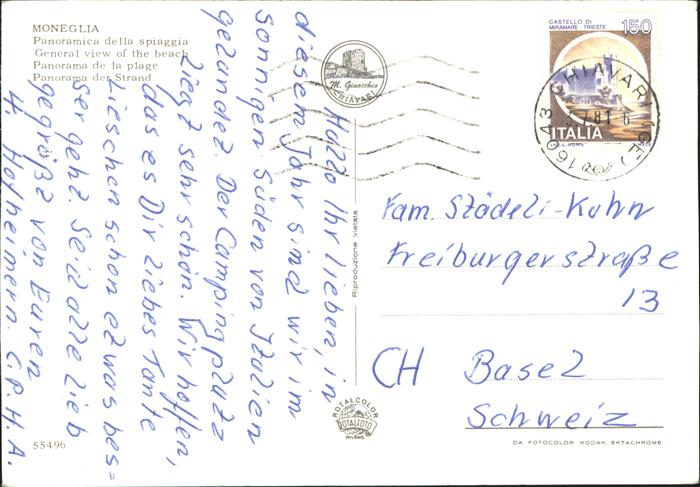 MONEGLIA
Panoramica della spiaggia
General view of the beach
Panorama de la plage
Panorama der Strand
Hallo Ihr lieben, in
diesem Jahr sind wir im
sonnigen Süden von Italien
gelandet. Der Campingplatz
liegt sehr schön. Wir hoffen,
das es Dir liebes Tante
Lieschen schon etwas bes=
ser geht. Seid alle lieb
gegrüßt von Euren
H. Hoffheimern. C. P. H. A.
55496
M. Ginocchio
CHIAVARI
CASTELLO DI
MIRAMARE - TRIESTE
150
ITALIA
16043 CHIAVARI (GE)
7.81
Riproduzione vietata
Fam. Städeli-Kuhn
Freiburgerstraße
13
CH Basel
Schweiz
ROTALCOLOR
ROTALFOTO
MILANO
DA FOTOCOLOR KODAK EKTACHROME